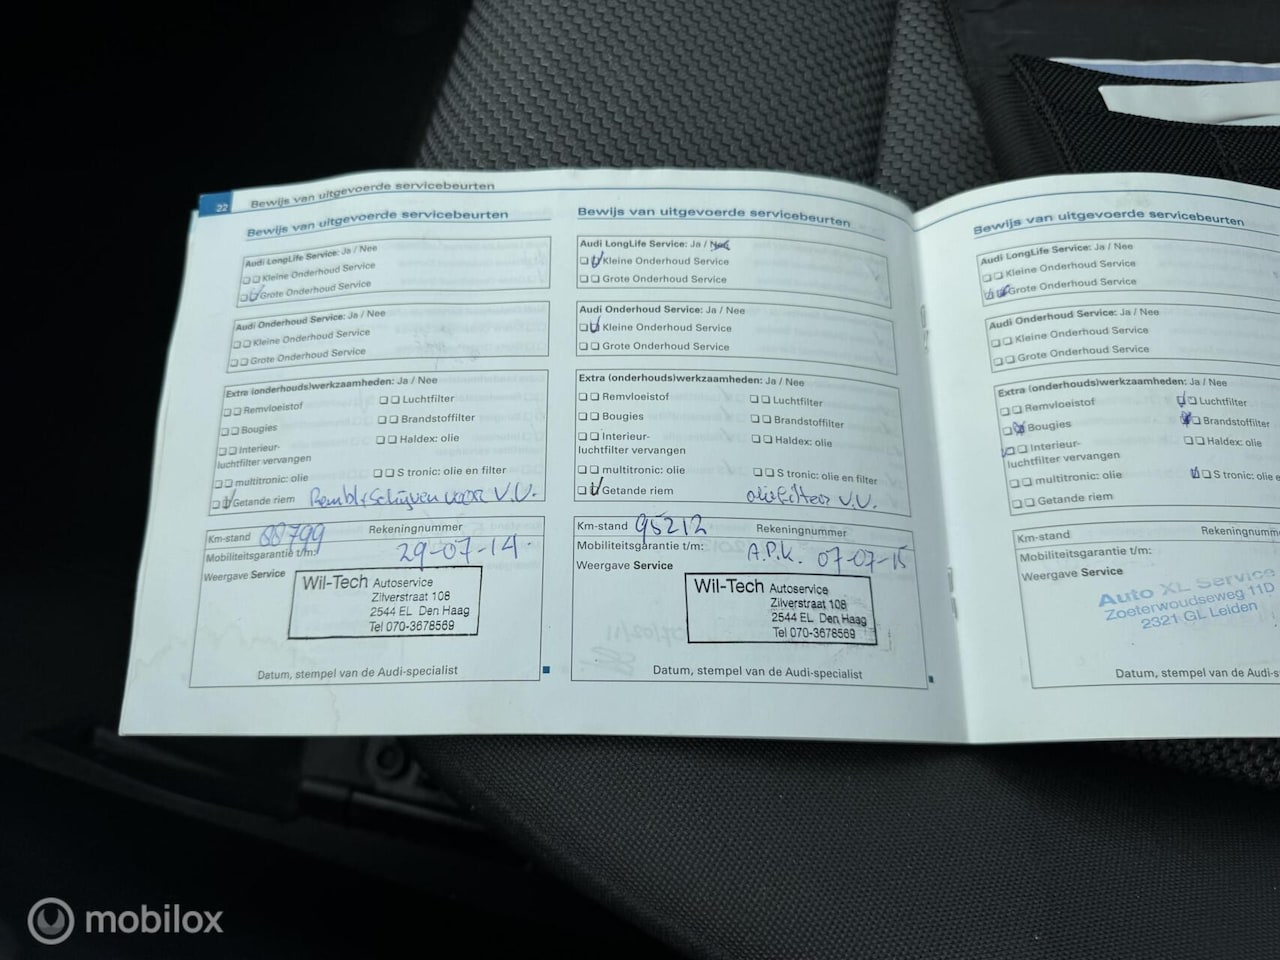 22
Bewijs van uitgevoerde servicebeurten
Bewijs van uitgevoerde servicebeurten
Audi LongLife Service: Ja / Nee
Kleine Onderhoud Service
Grote Onderhoud Service
Audi Onderhoud Service: Ja / Nee
Kleine Onderhoud Service
Grote Onderhoud Service
Extra (onderhouds)werkzaamheden: Ja / Nee
Remvloeistof
Luchtfilter
Bougies
Brandstoffilter
Interieur-
luchtfilter vervangen
Haldex: olie
multitronic: olie
S tronic: olie en filter
Getande riem
Schijven voor V.V.
Km-stand 88799
Rekeningnummer
Mobiliteitsgarantie t/m:
29-07-14.
Weergave Service
Wil-Tech Autoservice
Zilverstraat 108
2544 EL Den Haag
Tel 070-3678569
Datum, stempel van de Audi-specialist
Bewijs van uitgevoerde servicebeurten
Audi LongLife Service: Ja / Nee
Kleine Onderhoud Service
Grote Onderhoud Service
Audi Onderhoud Service: Ja / Nee
Kleine Onderhoud Service
Grote Onderhoud Service
Extra (onderhouds)werkzaamheden: Ja / Nee
Remvloeistof
Luchtfilter
Bougies
Brandstoffilter
Interieur-
luchtfilter vervangen
Haldex: olie
multitronic: olie
S tronic: olie en filter
Getande riem
oliefilter V.V.
Km-stand 95212
Rekeningnummer
Mobiliteitsgarantie t/m:
A.P.K. 07-07-15
Weergave Service
Wil-Tech Autoservice
Zilverstraat 108
2544 EL Den Haag
Tel 070-3678569
Datum, stempel van de Audi-specialist
Bewijs van uitgevoerde servicebeurten
Audi LongLife Service: Ja / Nee
Kleine Onderhoud Service
Grote Onderhoud Service
Audi Onderhoud Service: Ja / Nee
Kleine Onderhoud Service
Grote Onderhoud Service
Extra (onderhouds)werkzaamheden: Ja / Nee
Remvloeistof
Luchtfilter
Bougies
Brandstoffilter
Interieur-
luchtfilter vervangen
Haldex: olie
multitronic: olie
S tronic: olie
Getande riem
Km-stand
Rekeningnumm
Mobiliteitsgarantie t/m:
Weergave Service
Auto XL Service
Zoeterwoudseweg 11D
2321 GL Leiden
Datum, stempel van de Audi-s
mobilox